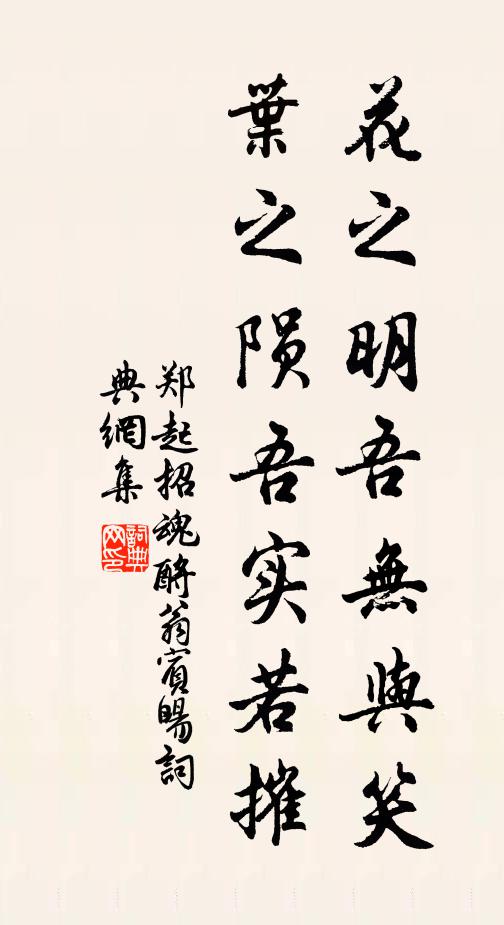 花之明吾無與笑
葉之陨吾实若摧
郑起招魂酹翁賓暘詞
典網集
詞典
网印